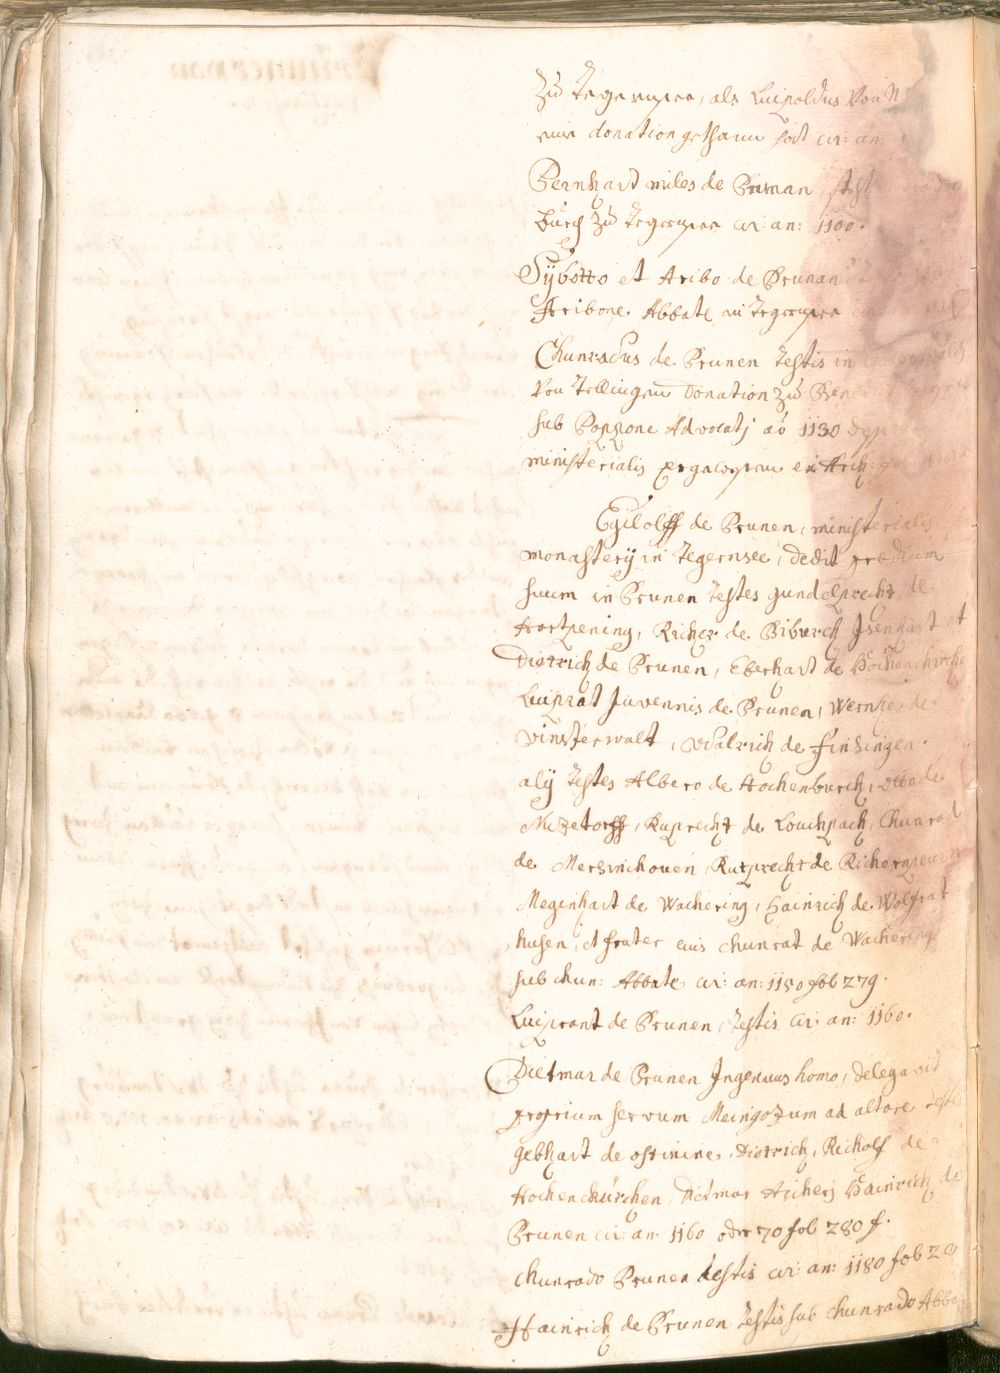 Zu Tegernsee, als Luipoldus Von
ein donation gethann hat cir: an:
Bernhart miles de Brunan
burch Zu Tegernsee cir: an: 1100.
Sybotto et Aribo de Brunan
Aribone. Abbate in Tegernsee
Chunradus de Brunen Testis in
Von Tellingen Donation Zu
sub Poppone Advocatj aõ 1130
ministerialis
Egilolff de Brunen, ministerialis
monasterij in Tegernsee, dedit prædium
suum in Brunen Testes gundelprecht de
Hortpening, Richer de Biburch Isenhart et
Dietrich de Brunen, Eberhart de Hochenchirche
Luiprat Juvennis de Brunen, Wernher de
Vinsterwalt, Vdalrich de Finsingen.
alij Testes Albero de Hochenburch, otto de
Nuzetorff, Ruprecht de Louchpach, Chunrad
de Mersinchouen, Rutprecht de
Meginhart de Wachering, Hainrich de Wolfrat
husen, et frater eius chunrat de Wachering
sub chun: Abbate cir: an: 1150 fol 279.
Luiprant de Brunen, Testis cir: an: 1160.
Dietmar de Brunen Ingenuus homo, delegavid
proprium servum Meingozum ad altare testes
gebhart de ostinine, Dietrich, Richolf de
Hochenchürchen, Dietmar Hainrich de
Brunen cir: an: 1160 oder 70 fol 280 f.
Chunrado Brunen testis cir: an: 1180 fol
Hainrich de Brunen Testis sub chunrado Abba